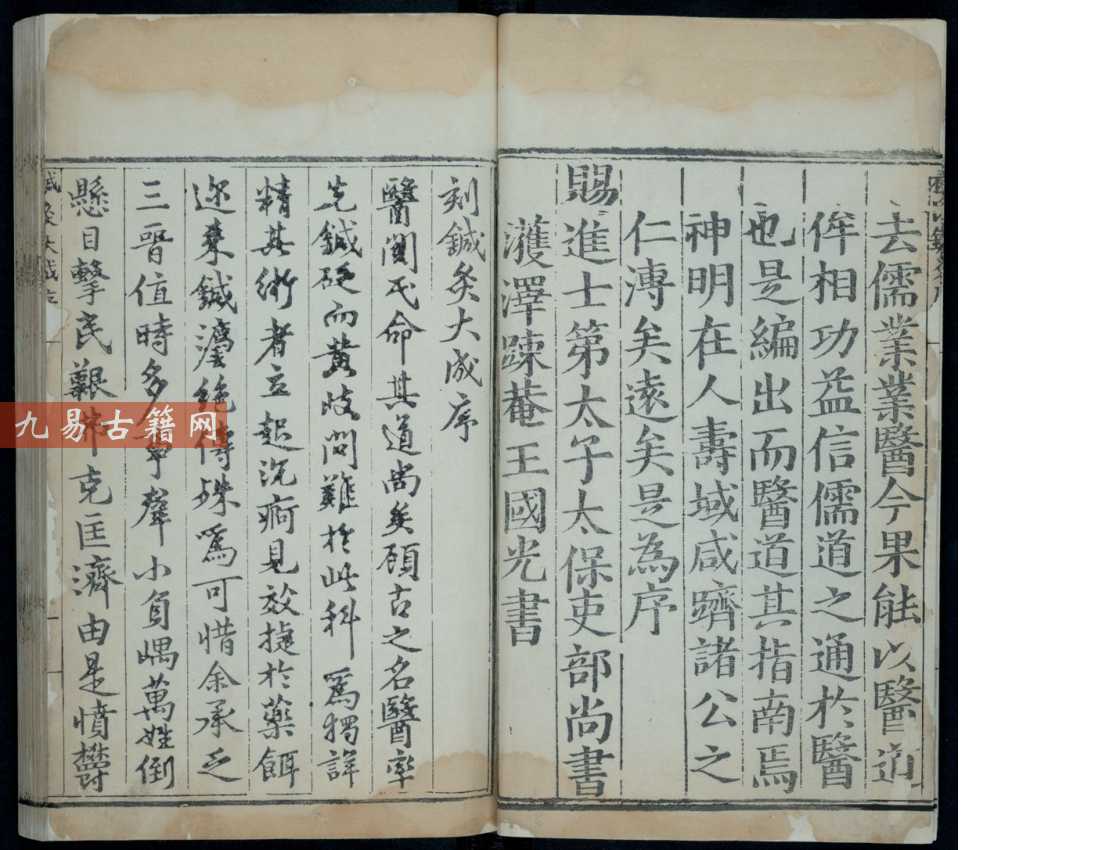 去儒業業醫今果能以醫道
侔相功益信儒道之通於醫
也是編出而醫道其指南焉
神明在人壽域咸躋諸公之
仁溥矣遠矣是為序
賜進士第太子太保吏部尚書
濩澤疎菴王國光書
刻鍼灸大成序
醫關民命其道尚矣顧古之名醫率
先鍼砭而黃岐問難於此科爲獨詳
精其術者立起沉痾見效捷於藥餌
邇來鍼灋絶傳殊爲可惜余承乏
三晉值時多
羣小負嵎萬姓倒
懸目擊民艱
克匡濟由是憤鬱
九易古籍网